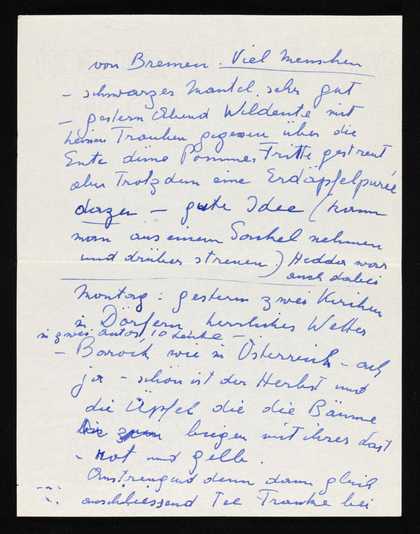 von Bremen. Viel Menschen
– schwarzes Mantel. sehr gut
– gestern Abend Wildente mit
kleinen Trauben gegessen über die
Ente dünne Pommes Fritte gestreut
aber Trotzdem eine Erdäpfelpurée
dazu – gute Idee (kann
man aus einem Sackel nehmen
und drüber streuen) Hedda war
auch dabei
Montag: gestern zwei Kirchen
in Dörfern herrliches Wetter
in zwei Autos 10 Leute –
– Barock wie in Österreich – ach
ja – schön ist der Herbst und
die Äpfel die die Bäume
biegen mit ihrer Last
– rot und gelb.
Anstrengend denn dann gleich
anschliessend Tee Trinken bei